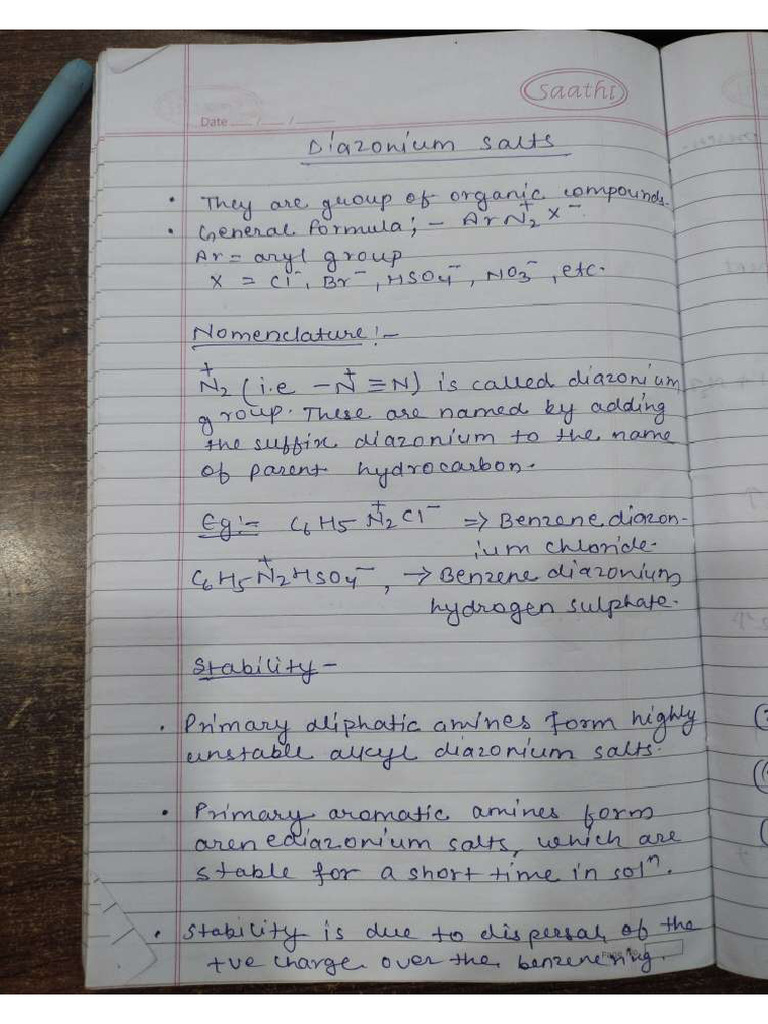 Saathi
Date ___/___/___
Diazonium salts
• They are group of organic compounds.
• General formula; – ArN₂⁺X⁻
Ar = aryl group
X = Cl⁻, Br⁻, HSO₄⁻, NO₃⁻, etc.
Nomenclature:-
N₂⁺ (i.e –N⁺≡N) is called diazonium
group. These are named by adding
the suffix diazonium to the name
of parent hydrocarbon.
Eg:- C₆H₅N₂⁺Cl⁻ => Benzene diazon-
ium chloride.
C₆H₅N₂⁺HSO₄⁻, → Benzene diazonium
hydrogen sulphate.
Stability –
• Primary aliphatic amines form highly
unstable alkyl diazonium salts.
• Primary aromatic amines form
arenediazonium salts, which are
stable for a short time in solⁿ.
• Stability is due to dispersal of the
+ve charge over the benzene ring.